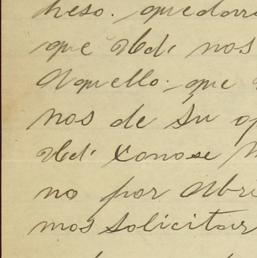 heso. quedarr
que Ud. nos
Aquello. que
nos de Su op
Ud. Conose
no por Abre
mos solicitar